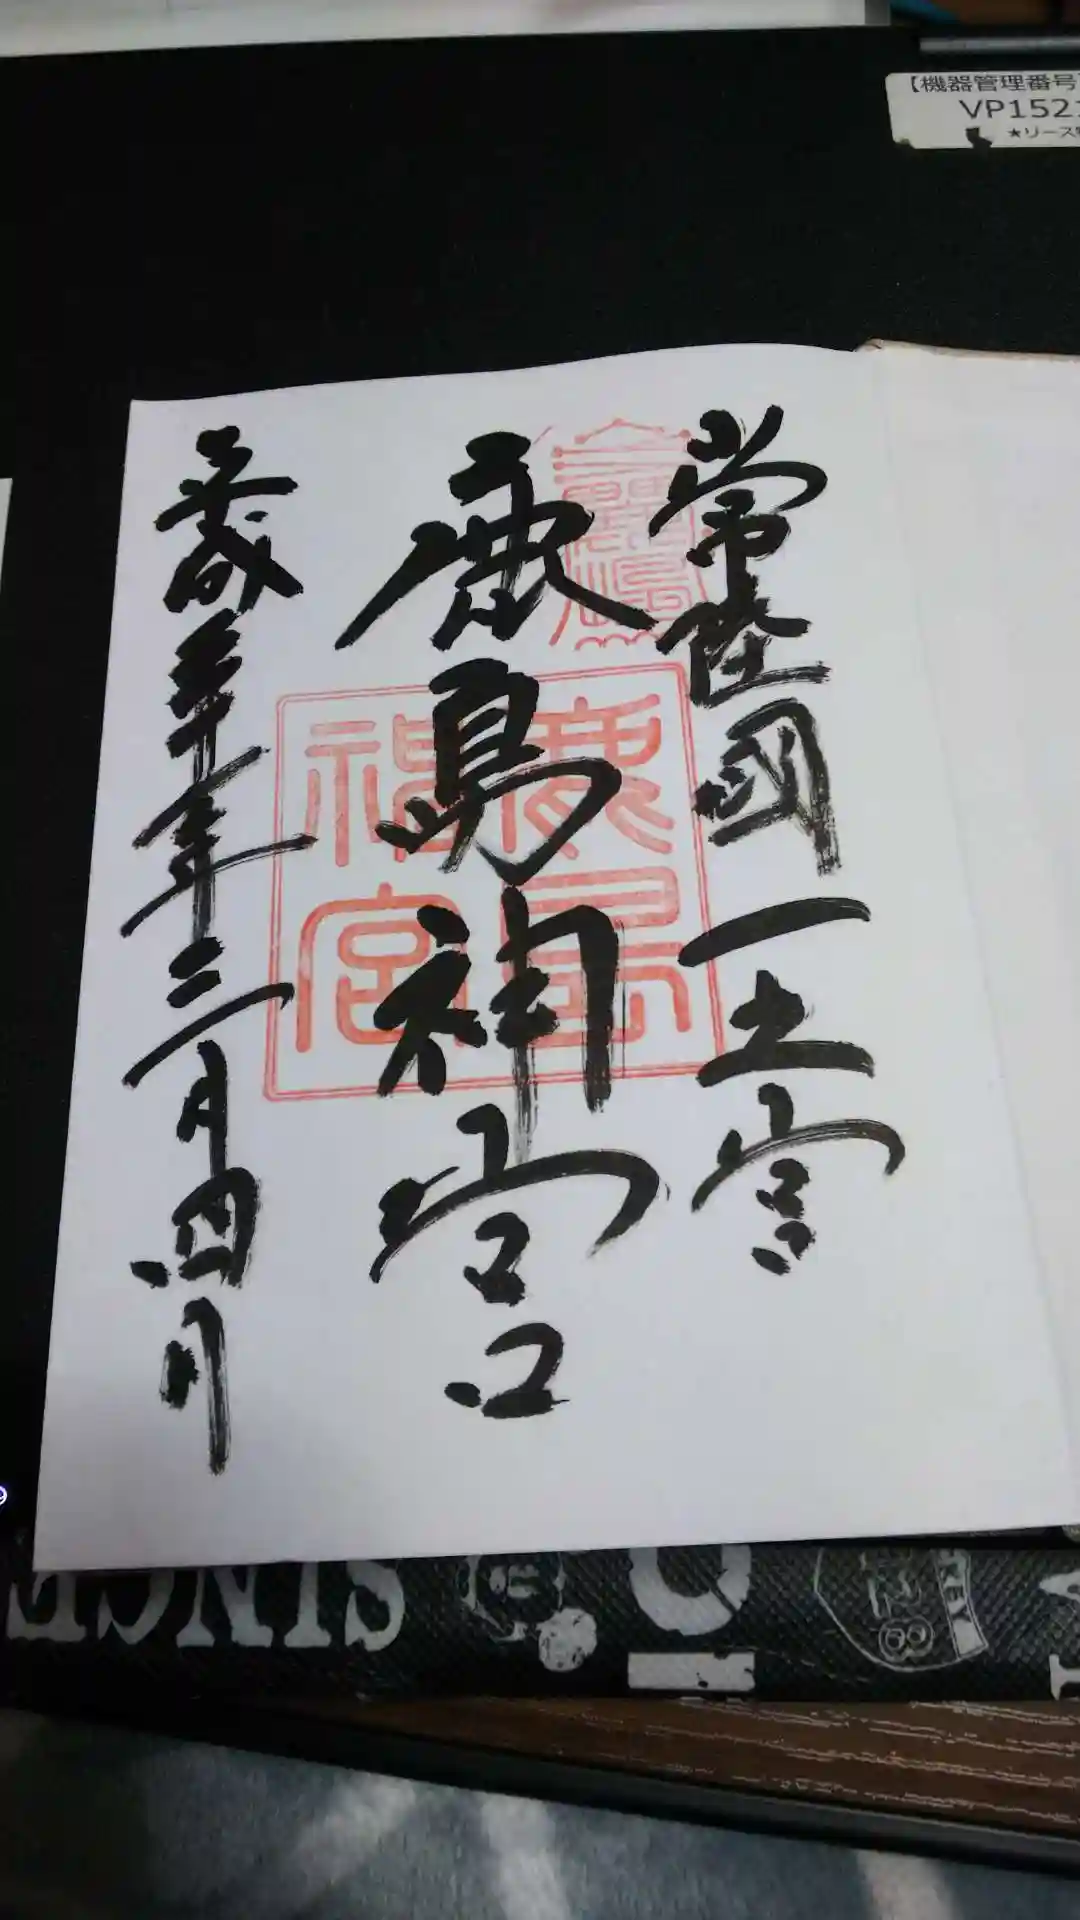 【機器管理番号
VP152
★リース
常陸國一之宮
鹿島神宮
鹿島神宮
平成三十年三月四日